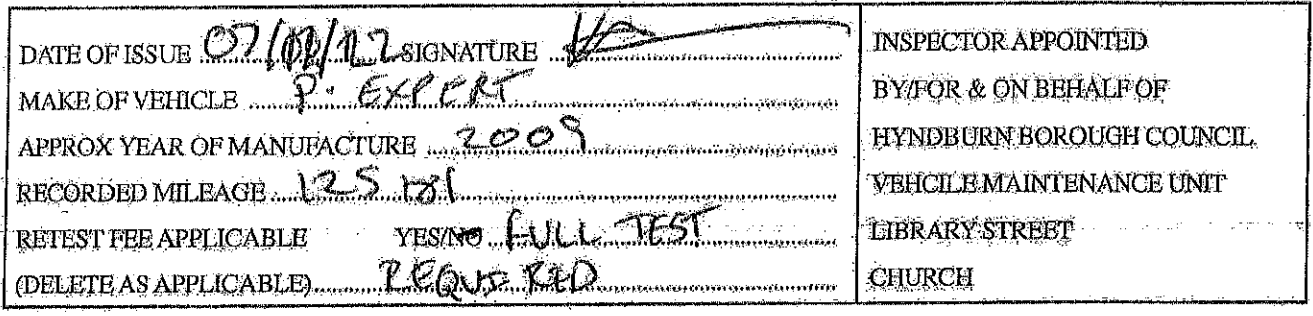 DATE OF ISSUE 07/ /12 SIGNATURE
MAKE OF VEHICLE P. EXPERT
APPROX YEAR OF MANUFACTURE 2009
RECORDED MILEAGE 125 181
RETEST FEE APPLICABLE YES/NO FULL TEST
(DELETE AS APPLICABLE) REQUIRED
INSPECTOR APPOINTED
BY/FOR & ON BEHALF OF
HYNDBURN BOROUGH COUNCIL
VEHCILE MAINTENANCE UNIT
LIBRARY STREET
CHURCH